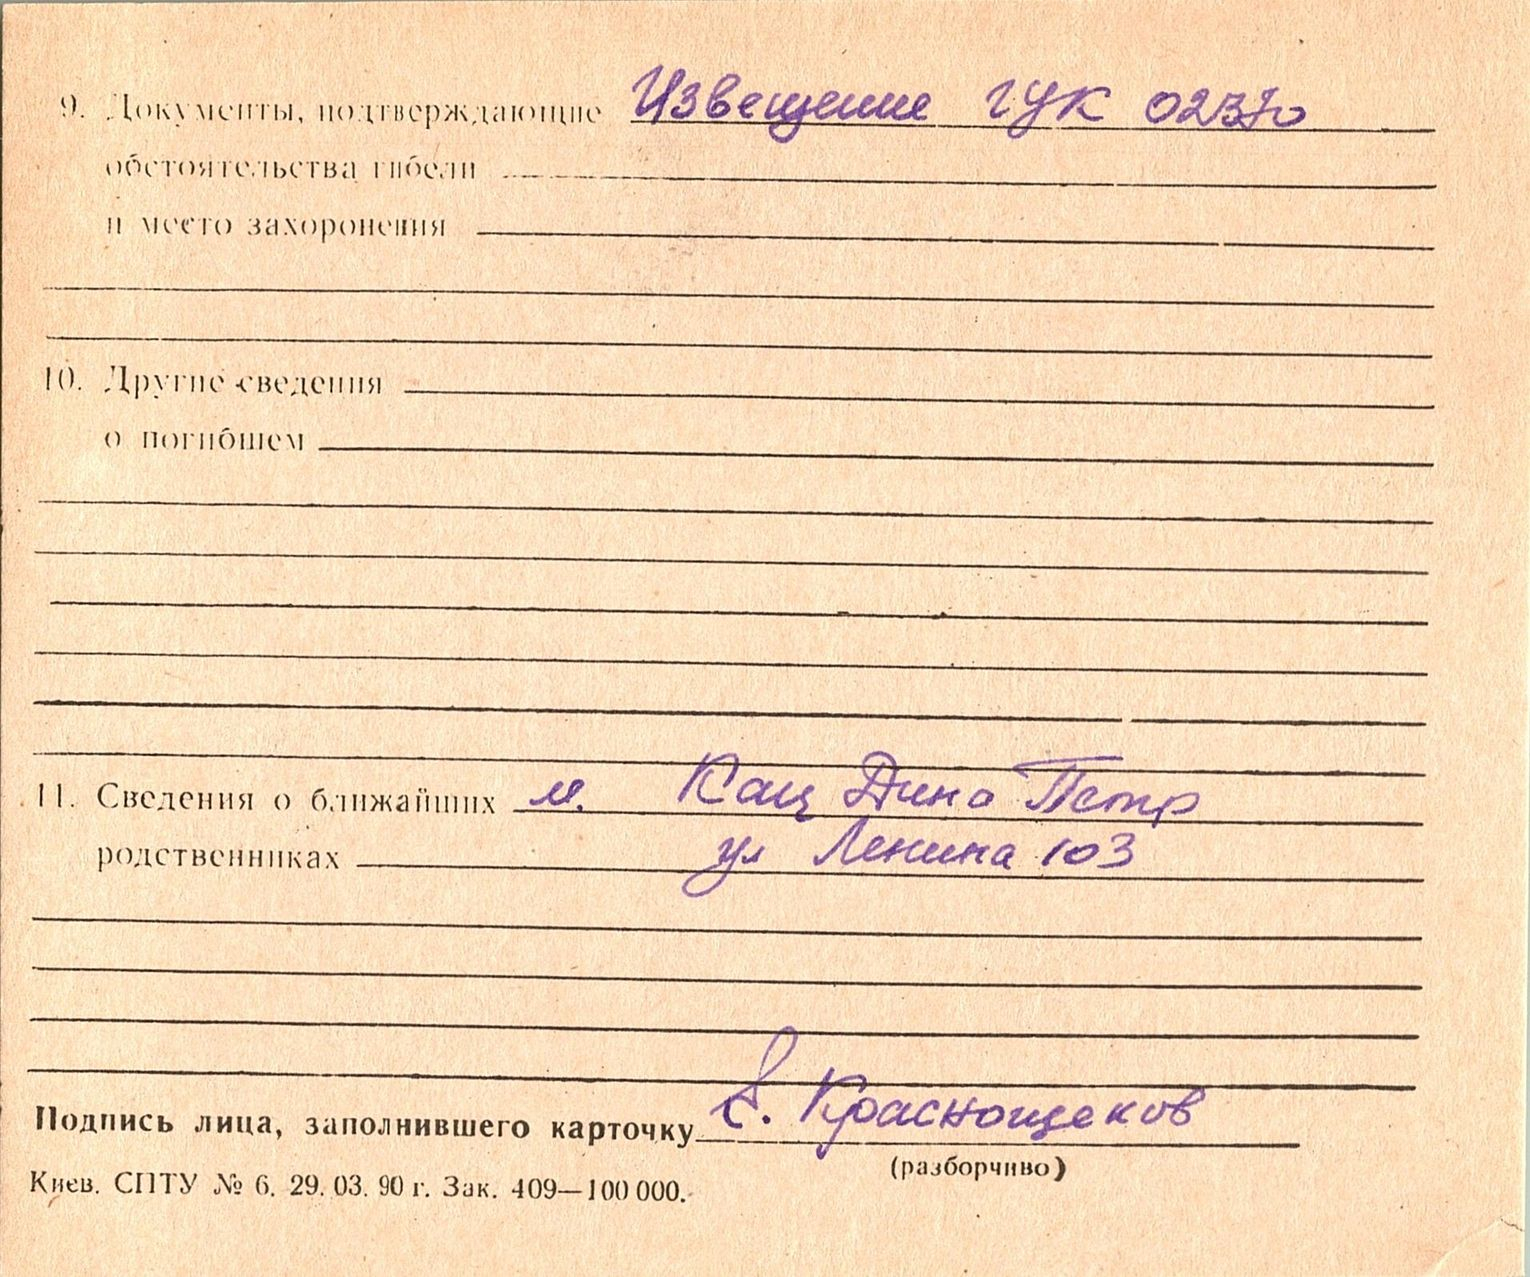 9. Документы, подтверждающие Извещение ГУК 02370
обстоятельства гибели
и место захоронения
10. Другие сведения
о погибшем
11. Сведения о ближайших м. Кац Дина Петр
родственниках ул Ленина 103
Подпись лица, заполнившего карточку С. Краснощеков
(разборчиво)
Киев. СПТУ № 6. 29. 03. 90 г. Зак. 409—100 000.